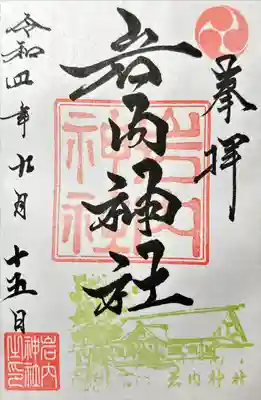 奉拝
岩内神社
岩内神社
令和四年九月十五日
岩内神社之印
岩内神社